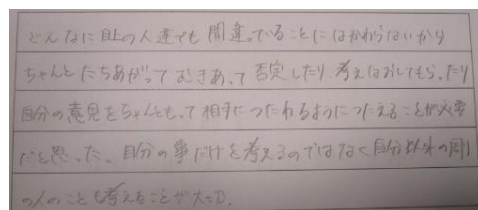 どんなに目上の人達でも間違っていることにはかわらないから
ちゃんとたちあがってむきあって否定したり考えなおしてもらったり
自分の意見をちゃんともって相手につたわるようにつたえることが必要
だと思った。自分の事だけを考えるのではなく自分以外の周り
の人のことも考えることが大切。